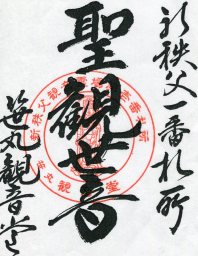 新秩父一番札所
聖観世音
笹丸観音堂